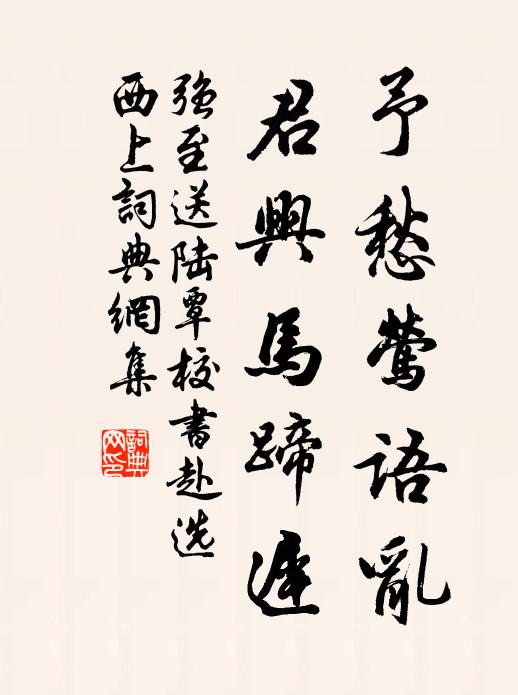 予愁鶯語亂
君興馬蹄遲
強至送陸覃校書赴选
西上詞典網集
詞典网印